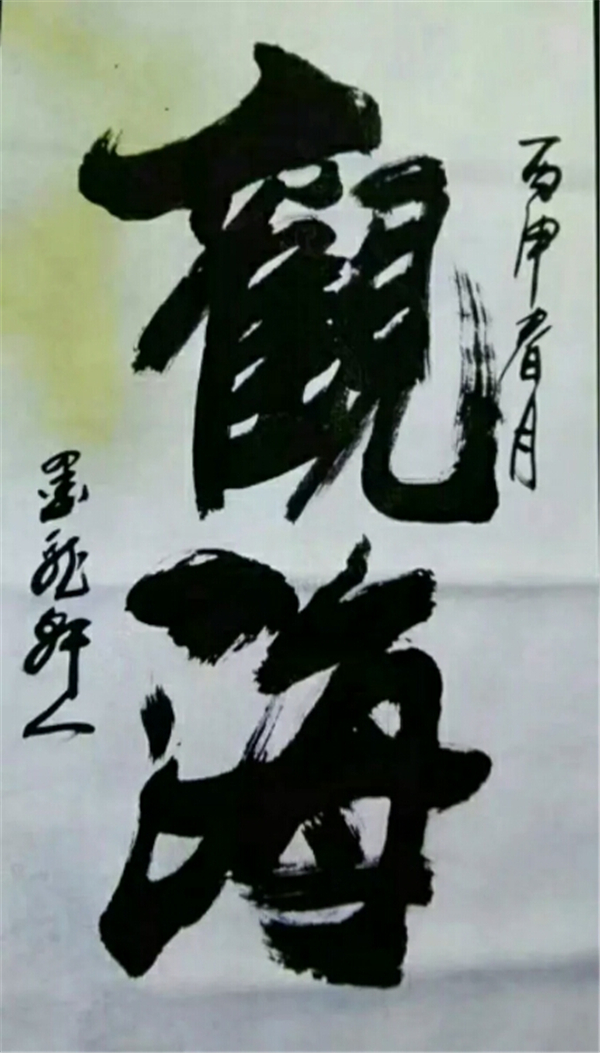 丙申春月
觀海
墨龍軒人